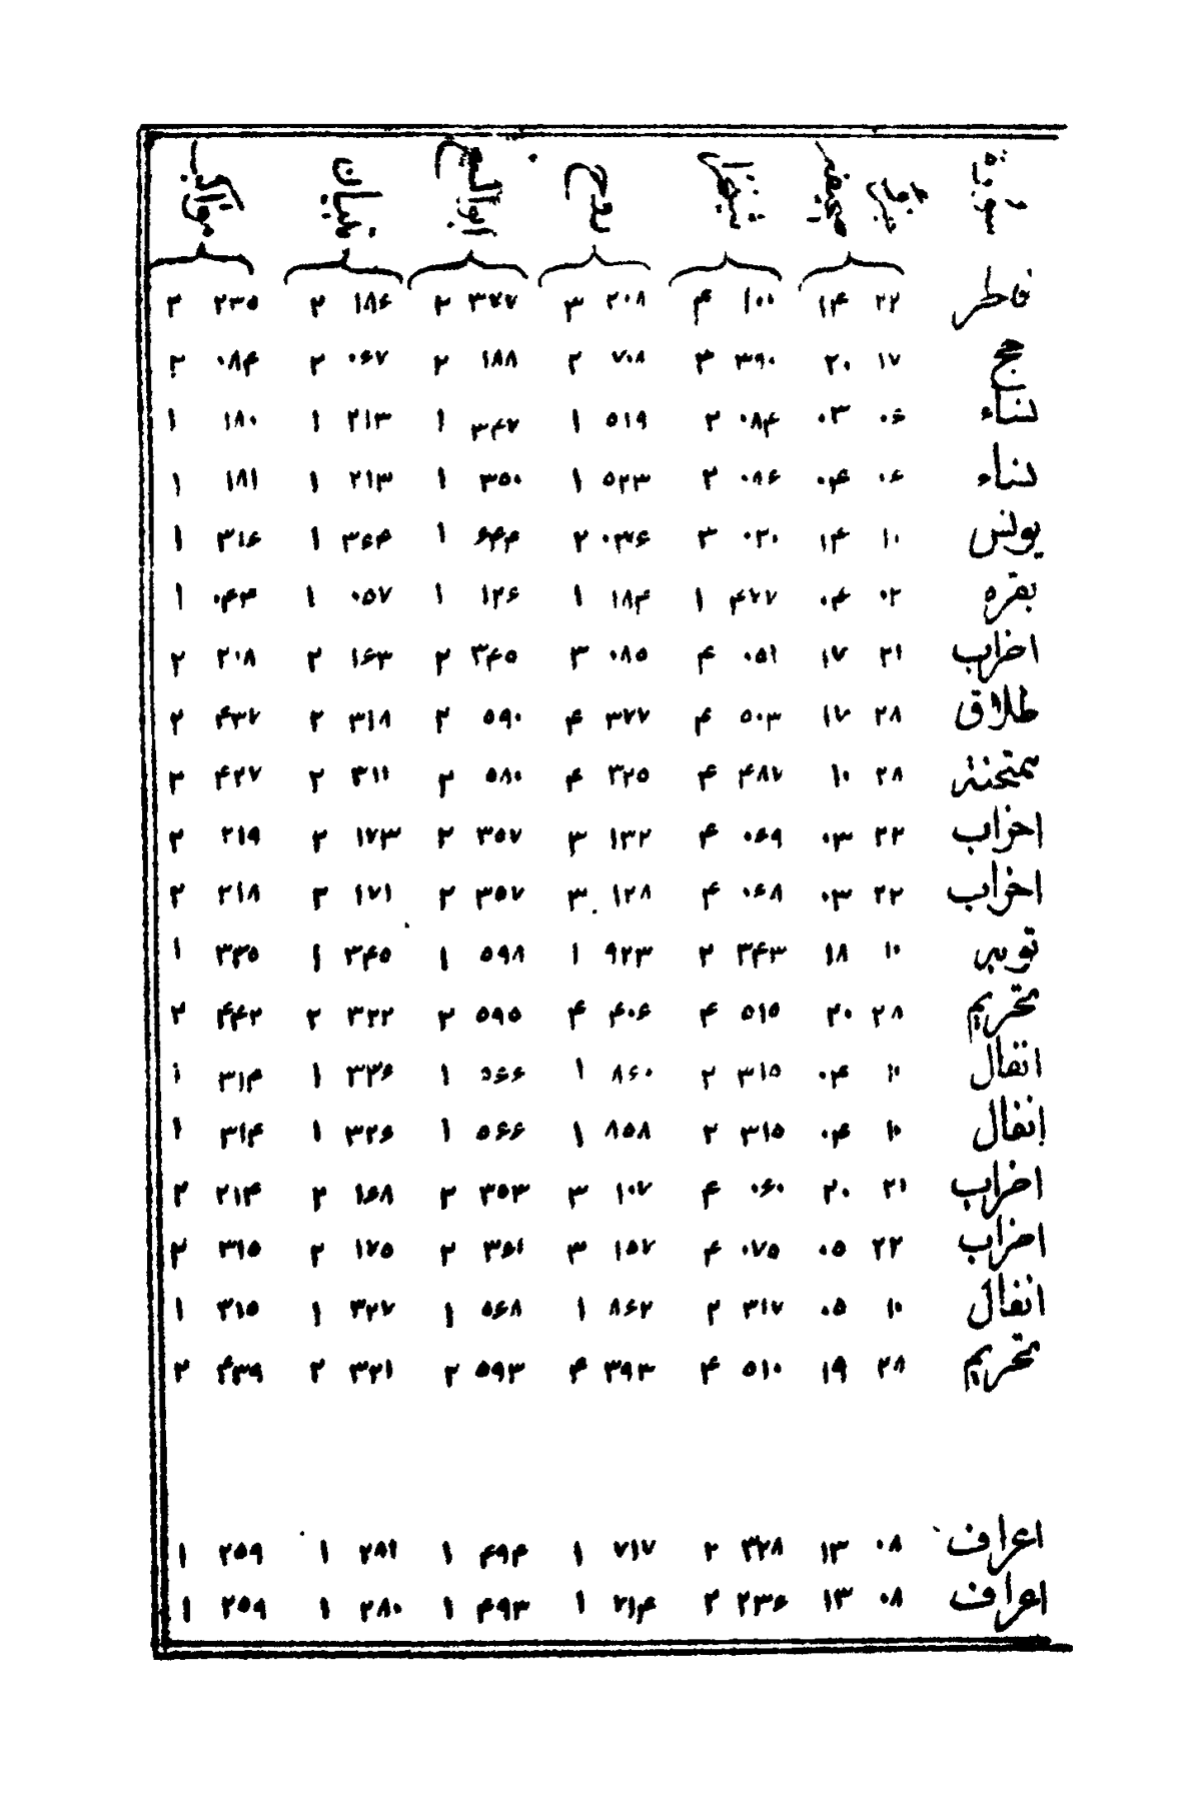 سورة جزء صحیفه تبیان روح ابوالفتوح
فاطر ۲۲ ۱۴ ۱۰۰ ۴ ۲۰۸ ۳ ۳۷۷ ۲ ۱۸۶ ۲ ۲۳۵ ۲
حج ۱۷ ۲۰ ۳۹۰ ۳ ۷۰۸ ۲ ۱۸۸ ۲ ۰۶۷ ۲ ۰۸۴ ۲
نساء ۰۶ ۰۳ ۰۸۴ ۲ ۵۱۹ ۱ ۳۴۷ ۱ ۲۱۳ ۱ ۱۸۰ ۱
نساء ۰۶ ۰۴ ۰۸۶ ۲ ۵۲۳ ۱ ۳۵۰ ۱ ۲۱۳ ۱ ۱۸۱ ۱
یونس ۱۰ ۱۴ ۰۲۰ ۳ ۰۳۶ ۲ ۶۴۴ ۱ ۳۶۴ ۱ ۳۱۶ ۱
بقره ۰۲ ۰۴ ۴۲۷ ۱ ۱۸۴ ۱ ۱۲۶ ۱ ۰۵۷ ۱ ۰۴۴ ۱
احزاب ۲۱ ۱۷ ۰۵۱ ۴ ۰۸۵ ۳ ۳۴۵ ۲ ۱۶۳ ۲ ۲۰۸ ۲
طلاق ۲۸ ۱۷ ۵۰۳ ۴ ۳۷۷ ۴ ۵۹۰ ۲ ۳۱۸ ۲ ۴۳۷ ۲
ممتحنة ۲۸ ۱۰ ۴۸۷ ۴ ۳۲۵ ۴ ۵۸۰ ۲ ۳۱۱ ۲ ۴۲۷ ۲
احزاب ۲۲ ۰۳ ۰۶۹ ۴ ۱۳۲ ۳ ۳۵۷ ۲ ۱۷۳ ۲ ۲۱۹ ۲
احزاب ۲۲ ۰۳ ۰۶۸ ۴ ۱۲۸ ۳ ۳۵۷ ۲ ۱۷۱ ۲ ۲۱۸ ۲
توبه ۱۰ ۱۸ ۳۴۳ ۲ ۹۲۳ ۱ ۵۹۸ ۱ ۳۴۵ ۱ ۳۳۵ ۱
تحریم ۲۸ ۲۰ ۵۱۵ ۴ ۴۰۶ ۴ ۵۹۵ ۲ ۳۲۲ ۲ ۴۴۲ ۲
انفال ۱۰ ۰۴ ۳۱۵ ۲ ۸۶۰ ۱ ۵۶۶ ۱ ۳۲۶ ۱ ۳۱۴ ۱
انفال ۱۰ ۰۴ ۳۱۵ ۲ ۸۵۸ ۱ ۵۶۶ ۱ ۳۲۶ ۱ ۳۱۴ ۱
احزاب ۲۱ ۲۰ ۰۶۰ ۴ ۱۰۷ ۳ ۳۵۳ ۲ ۱۶۸ ۲ ۲۱۴ ۲
احزاب ۲۲ ۰۵ ۰۷۵ ۴ ۱۵۷ ۳ ۳۶۱ ۲ ۱۷۵ ۲ ۳۱۵ ۲
انفال ۱۰ ۰۵ ۳۱۷ ۲ ۸۶۲ ۱ ۵۶۸ ۱ ۳۲۷ ۱ ۳۱۵ ۱
تحریم ۲۸ ۱۹ ۵۱۰ ۴ ۳۹۳ ۴ ۵۹۳ ۲ ۳۲۱ ۲ ۴۳۹ ۲
اعراف ۰۸ ۱۳ ۲۲۸ ۲ ۷۱۷ ۱ ۴۹۴ ۱ ۲۸۱ ۱ ۲۵۹ ۱
اعراف ۰۸ ۱۳ ۲۳۶ ۲ ۷۱۴ ۱ ۴۹۳ ۱ ۲۸۰ ۱ ۲۵۹ ۱